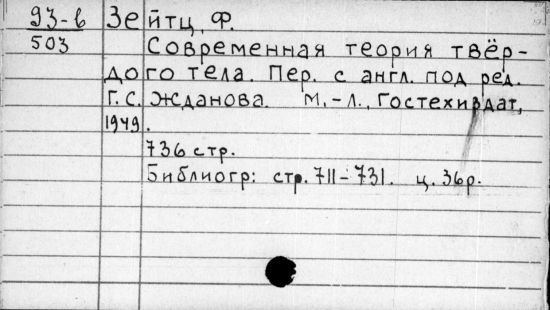 93-в Зейтц, Ф.
503 Современная теория твёр-
дого тела. Пер. с англ. под ред.
Г. С. Жданова. М.-Л., Гостехиздат,
1949.
736 стр.
Библиогр: стр. 711-731. ц. 36р.